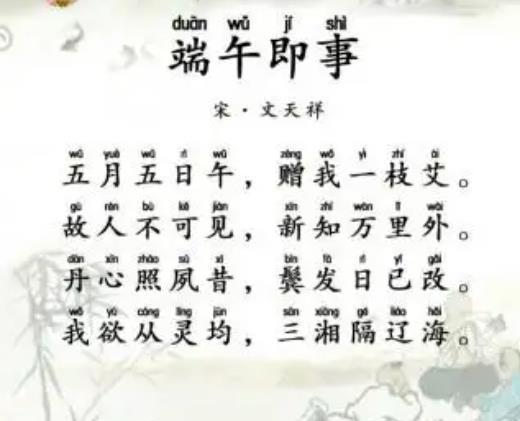 duān wǔ jí shì
端午即事
宋·文天祥
wǔ yuè wǔ rì wǔ zèng wǒ yì zhī ài
五月五日午，赠我一枝艾。
gù rén bù kě jiàn xīn zhī wàn lǐ wài
故人不可见，新知万里外。
dān xīn zhào sù xī bìn fà rì yǐ gǎi
丹心照夙昔，鬓发日已改。
wǒ yù cóng líng jūn sān xiāng gé liáo hǎi
我欲从灵均，三湘隔辽海。